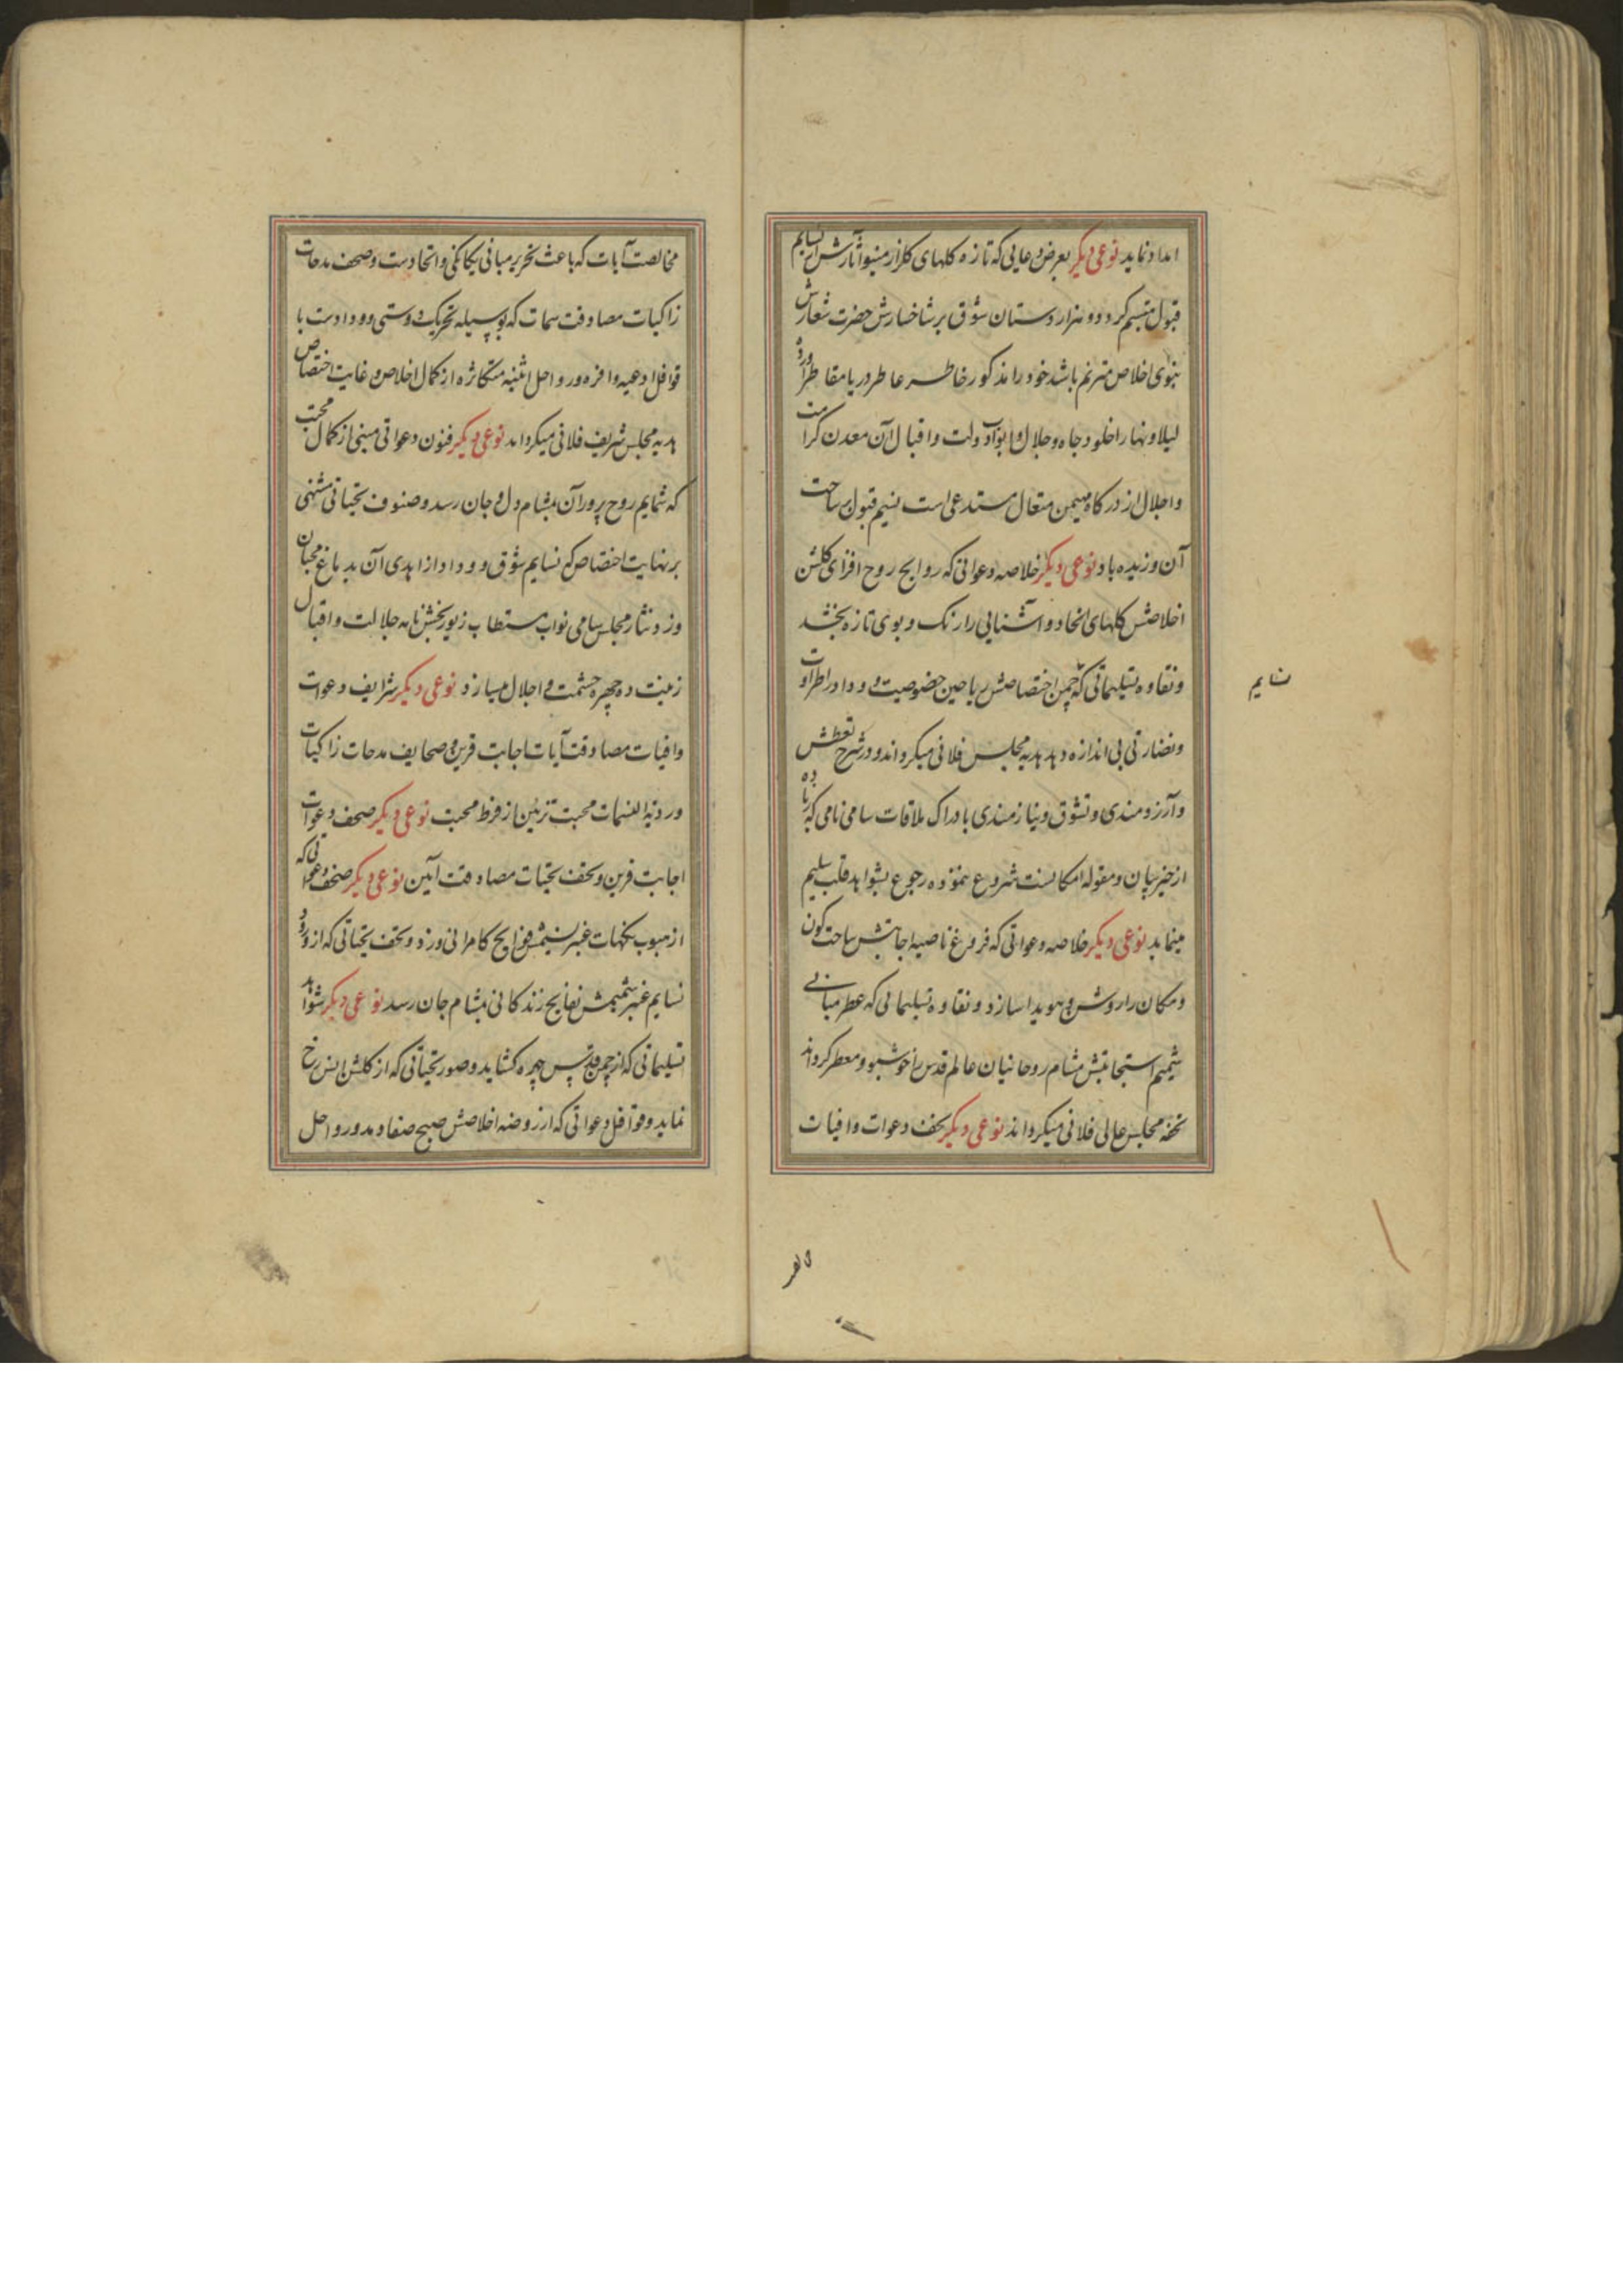 اهدا نماید نوعی دیکر بعرض دعایی که تازه کلهای کلزار مینو آثارش از نسایم
قبول متبسم کردد و هزار دستان شوق بر شاخسارش حضرت شعارش
بنوی اخلاص مترنم باشد خود را مذکور خاطر عاطر دریا مقاطر آورده
لیلا و نهارا خلود جاه و جلال و ابواب دولت و اقبال آن معدن کرامت
و اجلال از درکاه مهیمن متعال مستدعی است نسیم قبول بر ساحت
آن وزیده باد نوعی دیکر خلاصه دعواتی که روایح روح افزای کلشن
اخلاصش کلهای اتحاد و آشنایی را رنک و بوی تازه بخشد
و نقاوه تسلیماتی که چمن اختصاصش ریاحین خصوصیت و وداد را طراوت
و نضارتی بی اندازه دهد هدیه مجلس فلانی میکرداند و در شرح تعطش
و آرزومندی و تشوق و نیازمندی بادراک ملاقات سامی نامی که زیاده
از حیز بیان و مقوله امکانست شروع ننموده رجوع بشواهد قلب سلیم
مینماید نوعی دیکر خلاصه دعواتی که فروغ ناصیه اجابتش ساحت کون
و مکان را روشن و هویدا سازد و نقاوه تسلیماتی که عطر مبانی
شمیم استجابتش مشام روحانیان عالم قدس را خوشبو و معطر کرداند
تحفه مجلس عالی فلانی میکرداند نوعی دیکر تحف دعوات وافیات
نسایم
مخالصت آیات که باعث تحریر مبانی یکانکی و اتحادست و صحف مدحات
زاکیات مصادقت سمات که بوسیله تحریک دوستی و ودادست با
قوافل ادعیه وافره و رواحل اثنیه متکاثره از کمال اخلاص و غایت اختصاص
هدیه مجلس شریف فلانی میکرداند نوعی دیکر فنون دعواتی مبنی از کمال محبت
که شمایم روح پرور آن بمشام دل و جان رسد و صنوف تحیاتی منتهی
بر نهایت اختصاص که نسایم شوق و وداد از اهدی آن بدماغ محبان
وزد نثار مجلس سامی نواب مستطاب زیور بخش نامه جلالت و اقبال
زینت ده چهره حشمت و اجلال میسازد نوعی دیکر شرایف دعوات
وافیات مصادقت آیات اجابت قرین و صحایف مدحات زاکیات
وردیة النسمات محبت تزیین از فرط محبت نوعی دیکر صحف دعوات
اجابت قرین و تحف تحیات مصادقت آیین نوعی دیکر صحف دعواتی که
از هبوب نکهات عنبر نسیمش فوایح کامرانی وزد و تحف تحیاتی که از ورود
نسایم عنبر شمیمش نفایح زندکانی بمشام جان رسد نوعی دیکر شواهد
تسلیماتی که از چمن قدس چهره کشاید و صور تحیاتی که از کلشن انس رخ
نماید و قوافل دعواتی که از روضه اخلاصش صبح صفا دمد و رواحل